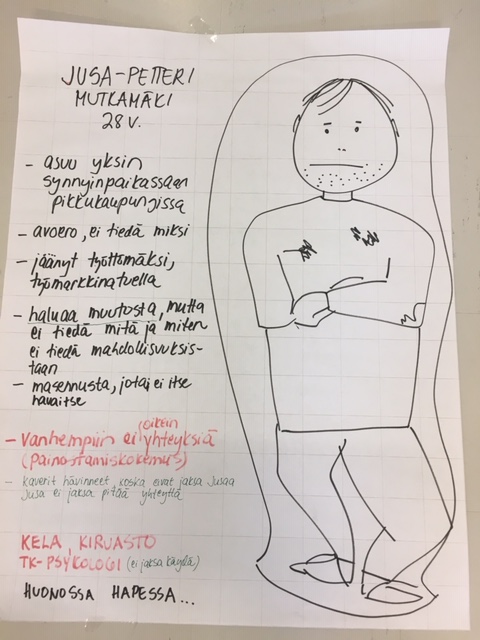 JUSA-PETTERI
MUTKAMÄKI
28 V.
- asuu yksin
synnyinpaikassaan
pikkukaupungissa
- avoero, ei tiedä miksi
- jäänyt työttömäksi,
työmarkkinatuella
- haluaa muutosta, mutta
ei tiedä mitä ja miten
ei tiedä mahdollisuuksis-
taan
- masennusta, jota ei itse
havaitse
- Vanhempiin ei oikein yhteyksiä
(Painostamiskokemus)
- Kaverit hävinneet, koska eivät jaksa Jusaa
Jusa ei jaksa pitää yhteyttä
KELA, KIRJASTO
TK-PSYKOLOGI (ei jaksa käydä)
HUONOSSA HAPESSA...